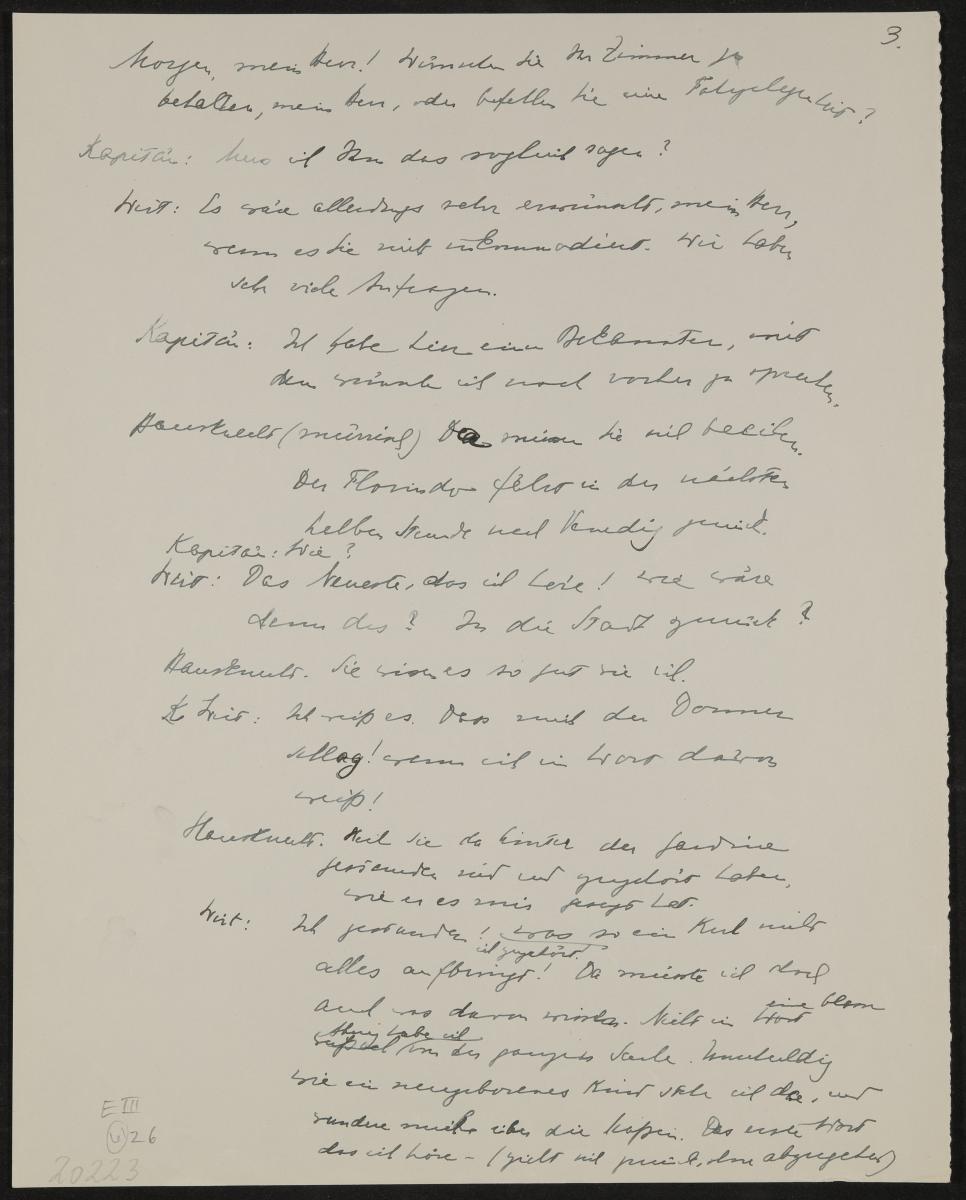 3.
Morgen, mein Herr! Wünschen Sie Ihr Zimmer zu
behalten, mein Herr, oder befehlen Sie eine Fahrgelegenheit?
Kapitän: Muss ich Ihnen das sogleich sagen?
Wirt: Es wäre allerdings sehr erwünscht, mein Herr,
wenn es Sie nicht incommodiert. Wir haben
sehr viele Anfragen.
Kapitän: Ich habe hier einen Bekannten, mit
dem wünsche ich noch vorher zu sprechen.
Hausknecht (mürrisch) Da müssen Sie sich beeilen.
Der Florindo fährt in der nächsten
halben Stunde nach Venedig zurück.
Kapitän: Wie?
Wirt: Das Neueste, das ich höre! Wie wäre
denn das? In die Stadt zurück?
Hausknecht. Sie wissen es so gut wie ich.
K Wirt: Ich weiß es. Dass mich der Donner
schlag! wenn ich ein Wort davon
weiß!
Hausknecht. Weil Sie da hinter der Gardine
gestanden sind und zugehört haben,
wie er es mir gesagt hat.
Wirt: Ich gestanden! was so ein Kerl nicht
ich zugehört.
alles aufbringt! Da müsste ich doch
auch was davon wissen. Nicht ein Wort
eine blasse
Ahnung habe ich
von der ganzen Sache. Unschuldig
wie ein neugeborenes Kind stehe ich da, und
wundere mich über die Massen. Das erste Wort
das ich höre – (zieht sich zurück, ohne abzugehen)
E III
26
20223